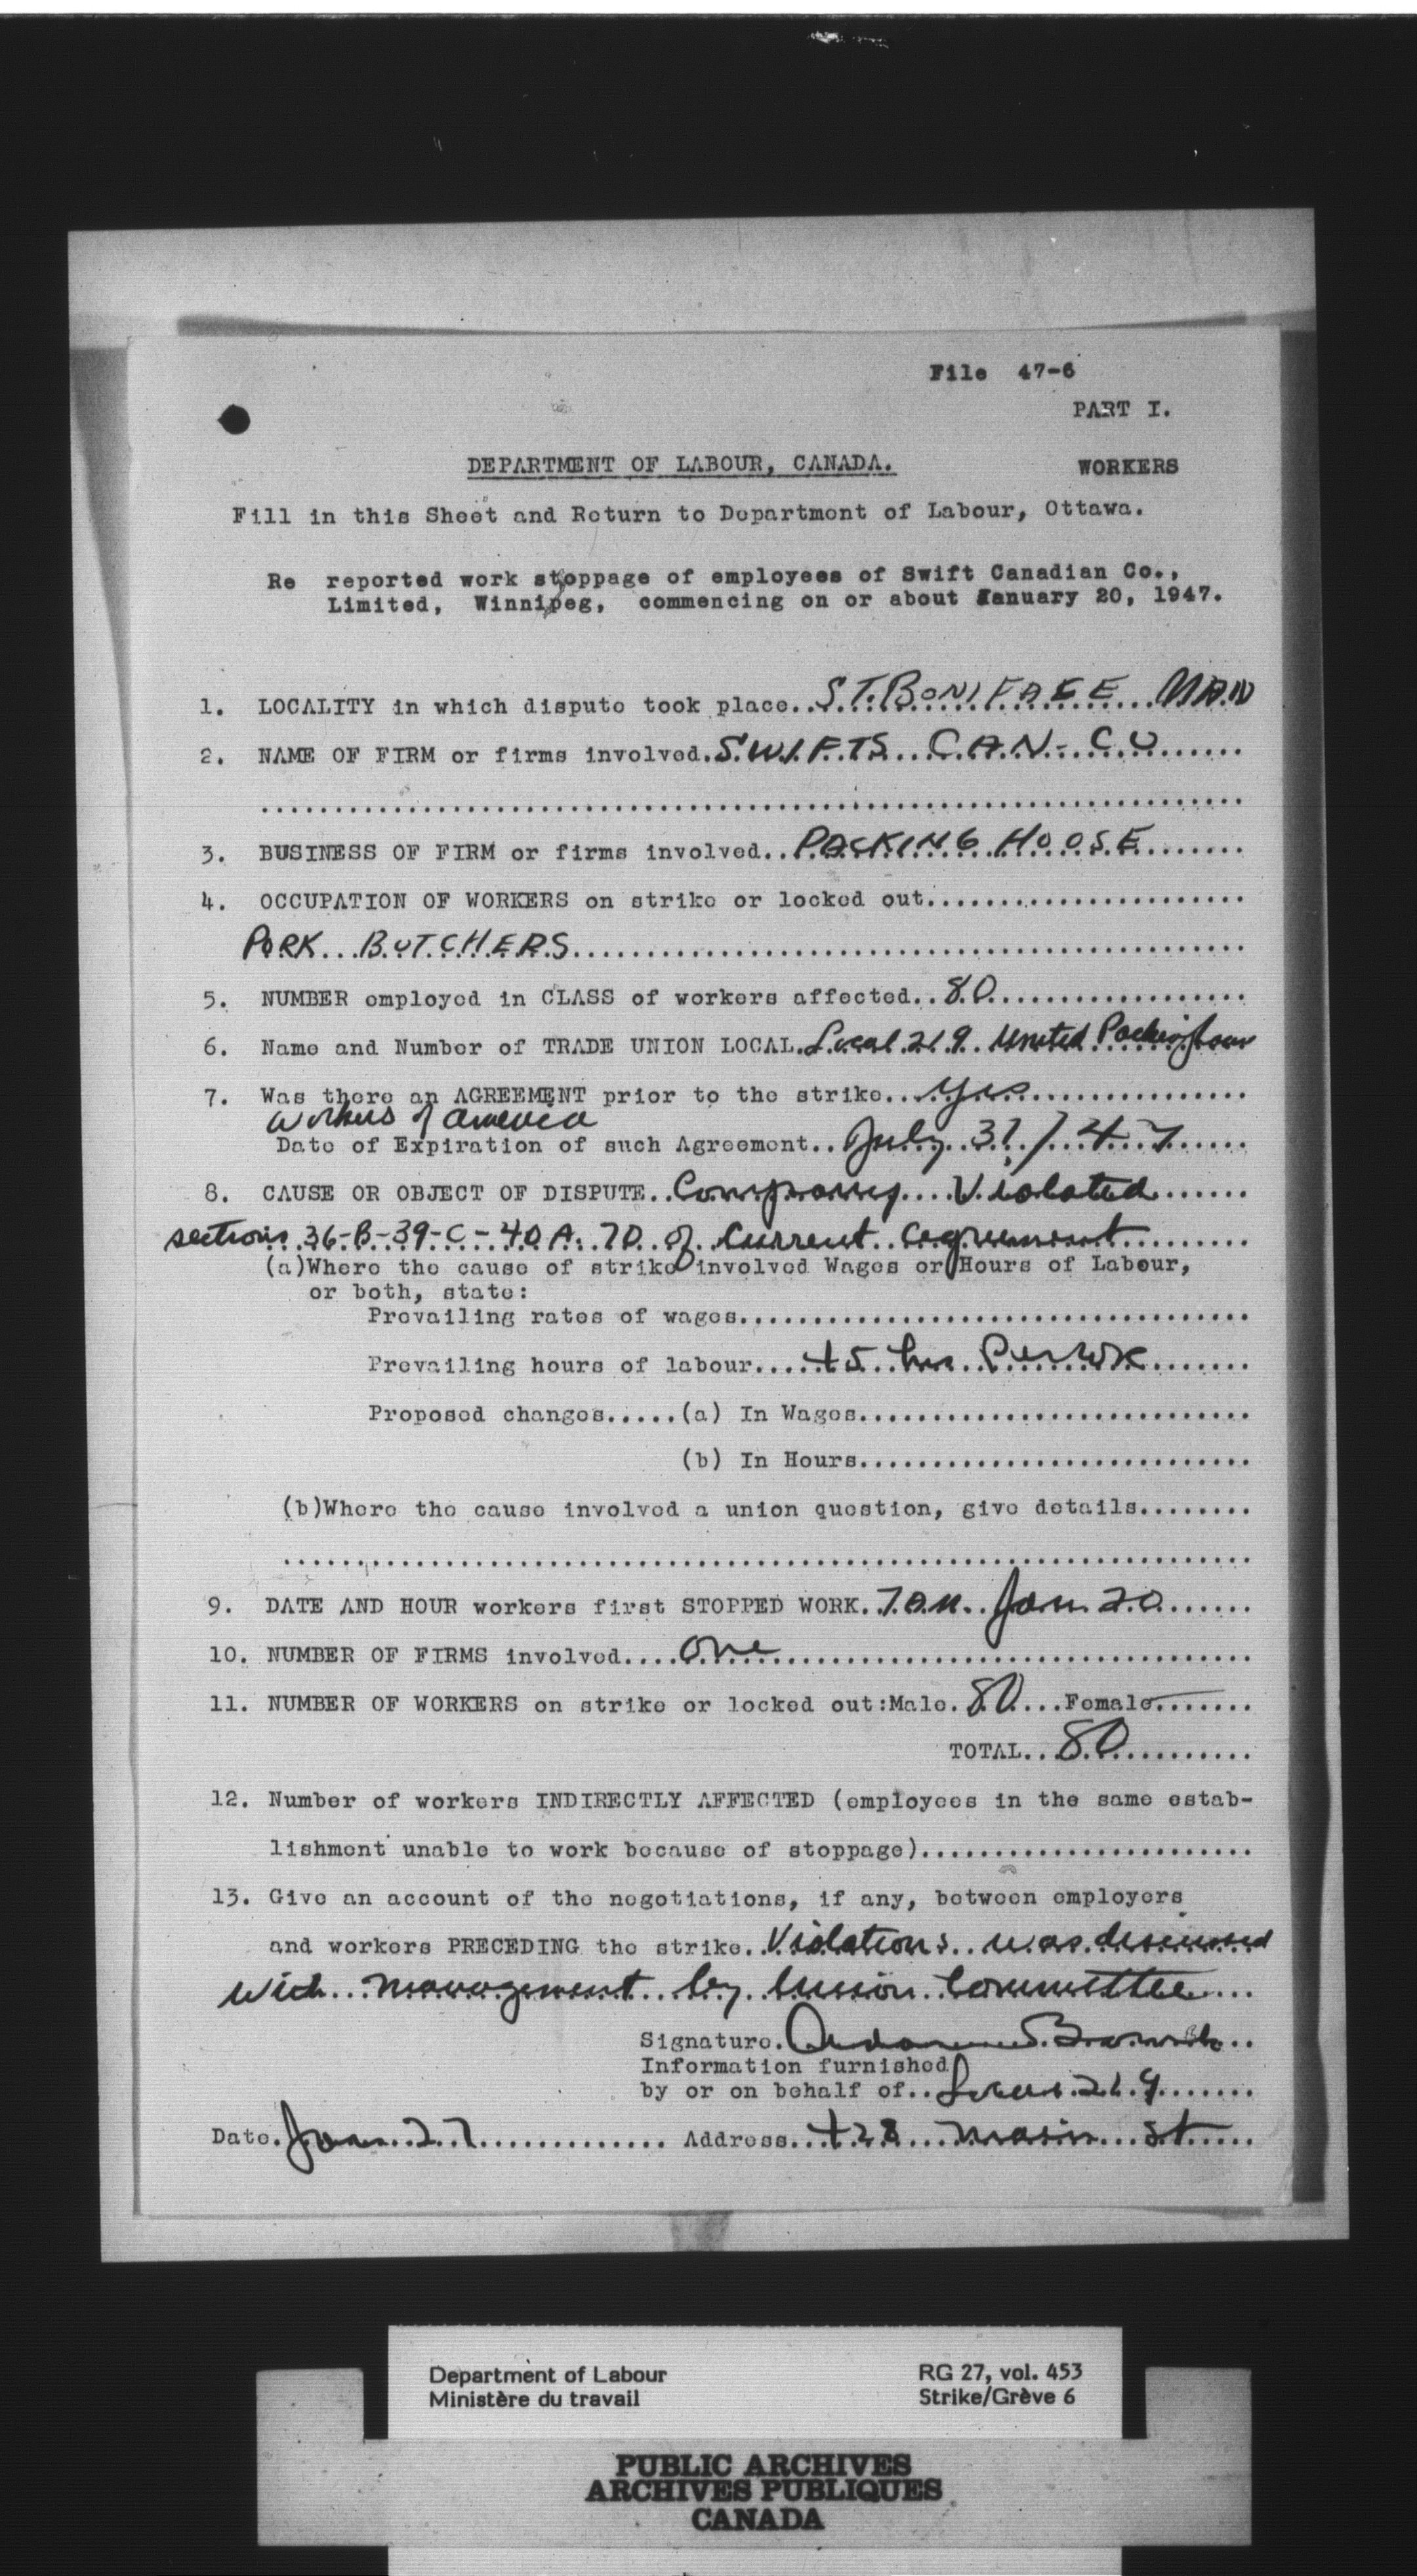 File 47-6
PART I.
DEPARTMENT OF LABOUR, CANADA. WORKERS
Fill in this Sheet and Return to Department of Labour, Ottawa.
Re reported work stoppage of employees of Swift Canadian Co.,
Limited, Winnipeg, commencing on or about January 20, 1947.
1. LOCALITY in which dispute took place..ST. BONIFACE MAN
2. NAME OF FIRM or firms involved.SWIFTS CAN- CO
3. BUSINESS OF FIRM or firms involved..PACKING HOOSE
4. OCCUPATION OF WORKERS on strike or locked out
PORK BUTCHERS
5. NUMBER employed in CLASS of workers affected..80
6. Name and Number of TRADE UNION LOCAL.Local 219 United Packinghouse
7. Was there an AGREEMENT prior to the strike...yes
Workers of america
Date of Expiration of such Agreement..July 31/47
8. CAUSE OR OBJECT OF DISPUTE..Company Violated
sections 36-B-39-C-40A.7D of Current agreement
(a)Where the cause of strike involved Wages or Hours of Labour,
or both, state:
Prevailing rates of wages
Prevailing hours of labour....45 hrs Per WK
Proposed changes.....(a) In Wages
(b) In Hours
(b)Where the cause involved a union question, give details
9. DATE AND HOUR workers first STOPPED WORK.7.A.M. Jan 20
10. NUMBER OF FIRMS involved....one
11. NUMBER OF WORKERS on strike or locked out:Male.80...Female
TOTAL...80
12. Number of workers INDIRECTLY AFFECTED (employees in the same estab-
lishment unable to work because of stoppage)
13. Give an account of the negotiations, if any, between employers
and workers PRECEDING the strike..Violations was discussed
with management by Union Committee
Signature.
Information furnished
by or on behalf of..Local 219
Date.Jan 27 Address...428 Main St
Department of Labour RG 27, vol. 453
Ministère du travail Strike/Grève 6
PUBLIC ARCHIVES
ARCHIVES PUBLIQUES
CANADA